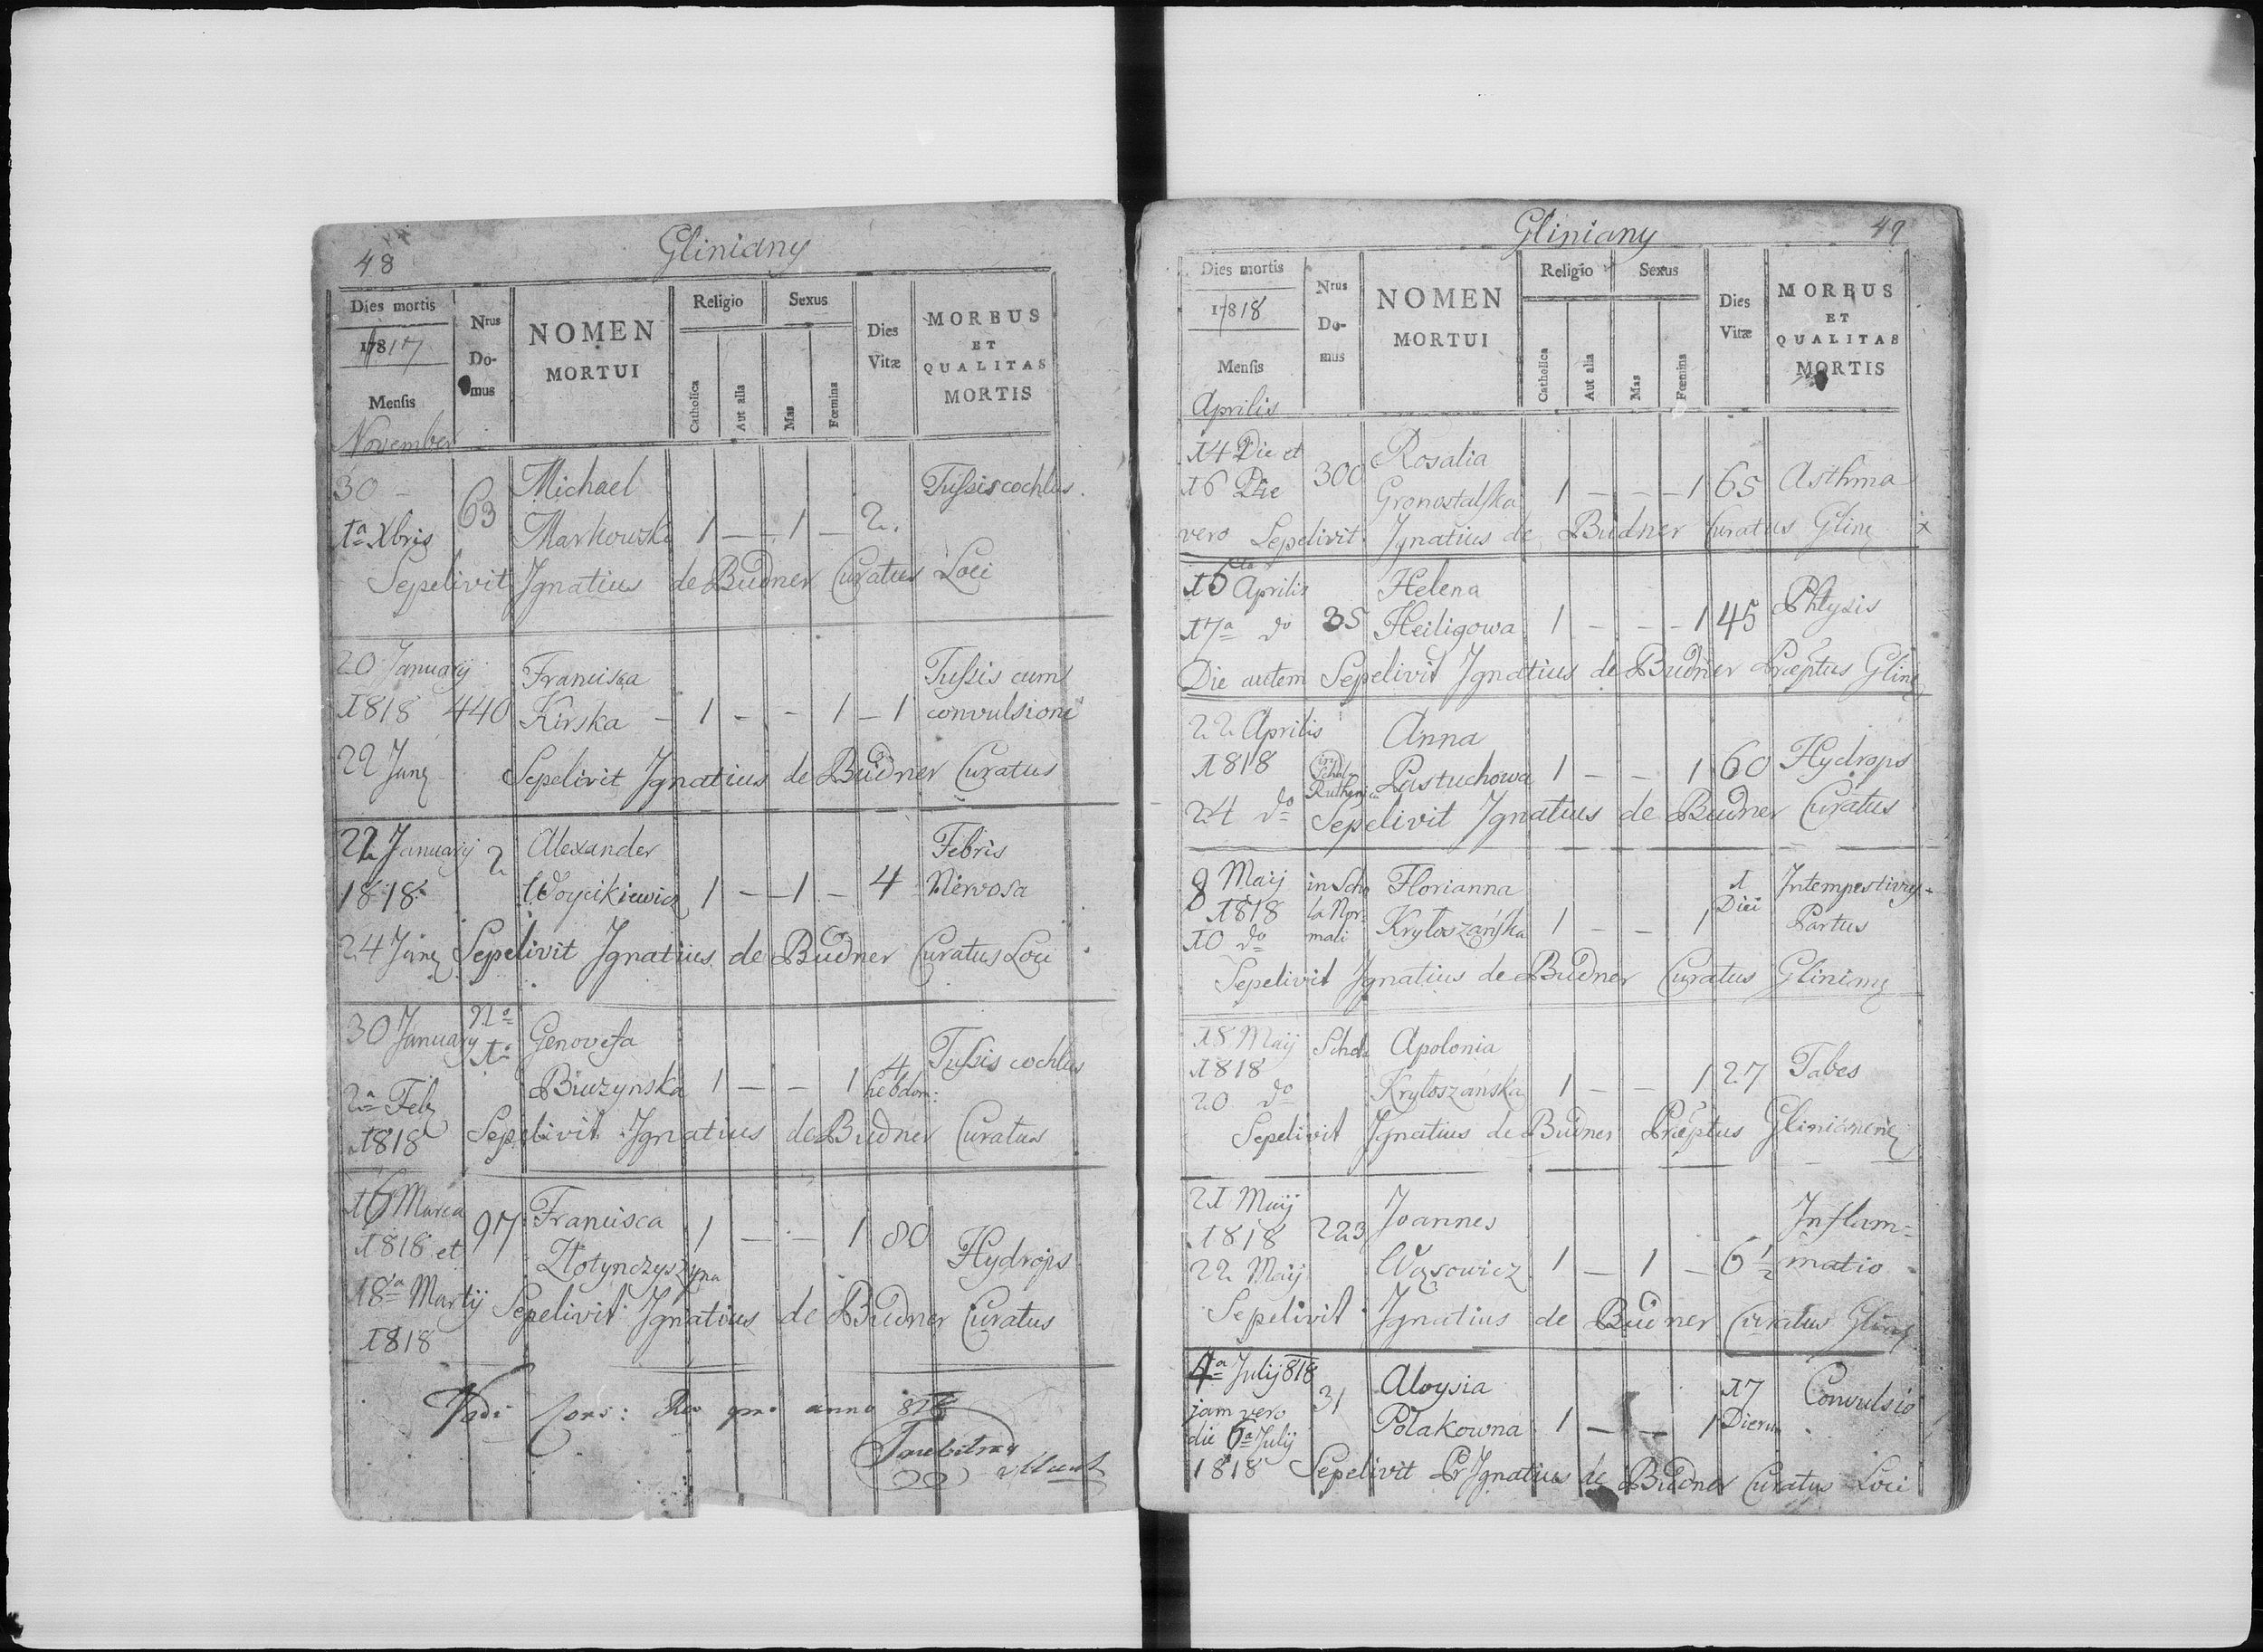 48 Gliniany
Dies mortis Nrus Domus NOMEN MORTUI Religio Sexus Dies Vitæ MORBUS ET QUALITAS MORTIS
17817
Mensis Catholica Aut alia Mas Fœmina
November
30 – 63 Michael Tussis cochlus.
1a Xbris Markowski 1 – – 1 – 2.
Sepelivit Ignatius de Budner Curatus Loci
20 Januarij Francisca Tussis cum
1818 440 Kirska – 1 – – 1 – 1 convulsione
22 Jany Sepelivit Ignatius de Budner Curatus
22 Januarij 2 Alexander Febris
1818 Woycikiewicz 1 – – 1 – 4 Nervosa
24 Jany Sepelivit Ignatius de Budner Curatus Loci
30 January No 1o Genovefa 4 Tussis cochlus
Biuzynska 1 – – 1 hebdom:
2a Feb
1818 Sepelivit Ignatius de Budner Curatus
16 Marca 97 Francisca 1 – – 1 80
1818 et Złotynczyszyna Hydrops
18a Martij Sepelivit Ignatius de Budner Curatus
1818
anno 818
49
Gliniany
Dies mortis Nrus Domus NOMEN MORTUI Religio Sexus Dies Vitæ MORBUS ET QUALITAS MORTIS
17818
Mensis Catholica Aut alia Mas Fœmina
Aprilis
14 Die et 300 Rosalia
16 Die Gronostalska 1 – – – 1 65 Asthma
vero Sepelivit Ignatius de Budner Curatus Glin x
15 Aprilis Helena
17a do 35 Heiligowa 1 – – – 1 45 Phtysis
Die autem Sepelivit Ignatius de Budner Præptus Glin
22 Aprilis Anna
1818 in Schol Ruthenica Pastuchowa 1 – – 1 60 Hydrops
24 do Sepelivit Ignatius de Budner Curatus
8 Maij in Scho Florianna 1 Intempestivus
1818 la Nor- Diei
10 do mali Kryłoszańska 1 – – 1 Partus
Sepelivit Ignatius de Budner Curatus Gliniany
18 Maij Schola Apolonia
1818
20 do Kryłoszańska 1 – – 1 27 Tabes
Sepelivit Ignatius de Budner Præptus
21 Maij Joannes Inflam-
1818 223
22 Maij Wąsowicz 1 – 1 – 6 1/2 matio
Sepelivit Ignatius de Budner Curatus
4a Julij 818 31 Aloysia 17 Convulsio
jam vero Polakowna 1 – – 1 Dierum
die 6a Julij
1818 Sepelivit Pr Ignatius de Budner Curatus Loci